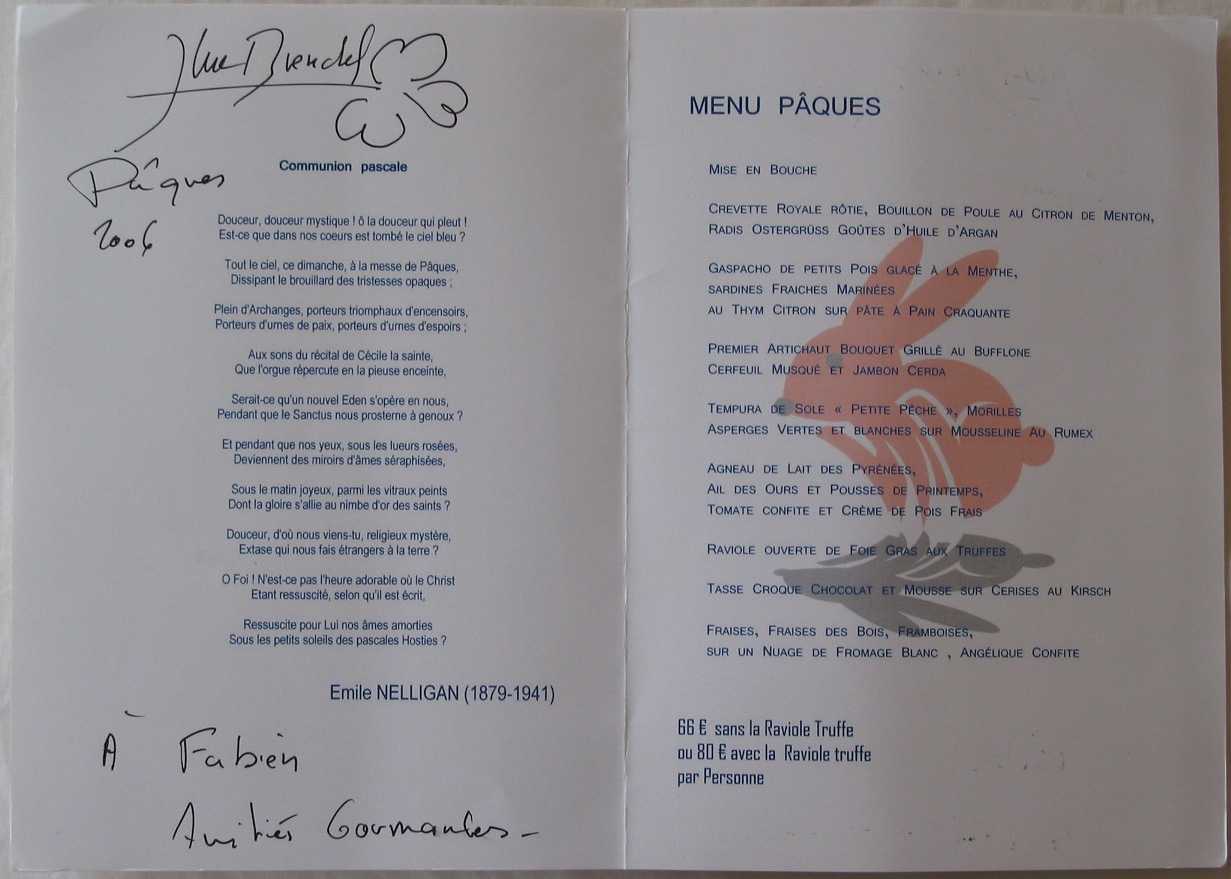 Yves Brendel
Pâques
2006
Communion pascale
Douceur, douceur mystique ! ô la douceur qui pleut !
Est-ce que dans nos coeurs est tombé le ciel bleu ?
Tout le ciel, ce dimanche, à la messe de Pâques,
Dissipant le brouillard des tristesses opaques ;
Plein d'Archanges, porteurs triomphaux d'encensoirs,
Porteurs d'urnes de paix, porteurs d'urnes d'espoirs ;
Aux sons du récital de Cécile la sainte,
Que l'orgue répercute en la pieuse enceinte,
Serait-ce qu'un nouvel Eden s'opère en nous,
Pendant que le Sanctus nous prosterne à genoux ?
Et pendant que nos yeux, sous les lueurs rosées,
Deviennent des miroirs d'âmes séraphisées,
Sous le matin joyeux, parmi les vitraux peints
Dont la gloire s'allie au nimbe d'or des saints ?
Douceur, d'où nous viens-tu, religieux mystère,
Extase qui nous fais étrangers à la terre ?
O Foi ! N'est-ce pas l'heure adorable où le Christ
Etant ressuscité, selon qu'il est écrit,
Ressuscite pour Lui nos âmes amorties
Sous les petits soleils des pascales Hosties ?
Emile NELLIGAN (1879-1941)
À Fabien
Amitiés Gourmandes -
MENU PÂQUES
MISE EN BOUCHE
CREVETTE ROYALE RÔTIE, BOUILLON DE POULE AU CITRON DE MENTON,
RADIS OSTERGRÜSS GOÛTES D'HUILE D'ARGAN
GASPACHO DE PETITS POIS GLACÉ À LA MENTHE,
SARDINES FRAICHES MARINÉES
AU THYM CITRON SUR PÂTE À PAIN CRAQUANTE
PREMIER ARTICHAUT BOUQUET GRILLÉ AU BUFFLONE
CERFEUIL MUSQUÉ ET JAMBON CERDA
TEMPURA DE SOLE « PETITE PÊCHE », MORILLES
ASPERGES VERTES ET BLANCHES SUR MOUSSELINE AU RUMEX
AGNEAU DE LAIT DES PYRÉNÉES,
AIL DES OURS ET POUSSES DE PRINTEMPS,
TOMATE CONFITE ET CRÈME DE POIS FRAIS
RAVIOLE OUVERTE DE FOIE GRAS AUX TRUFFES
TASSE CROQUE CHOCOLAT ET MOUSSE SUR CERISES AU KIRSCH
FRAISES, FRAISES DES BOIS, FRAMBOISES,
SUR UN NUAGE DE FROMAGE BLANC , ANGÉLIQUE CONFITE
66 € sans la Raviole Truffe
ou 80 € avec la Raviole truffe
par Personne